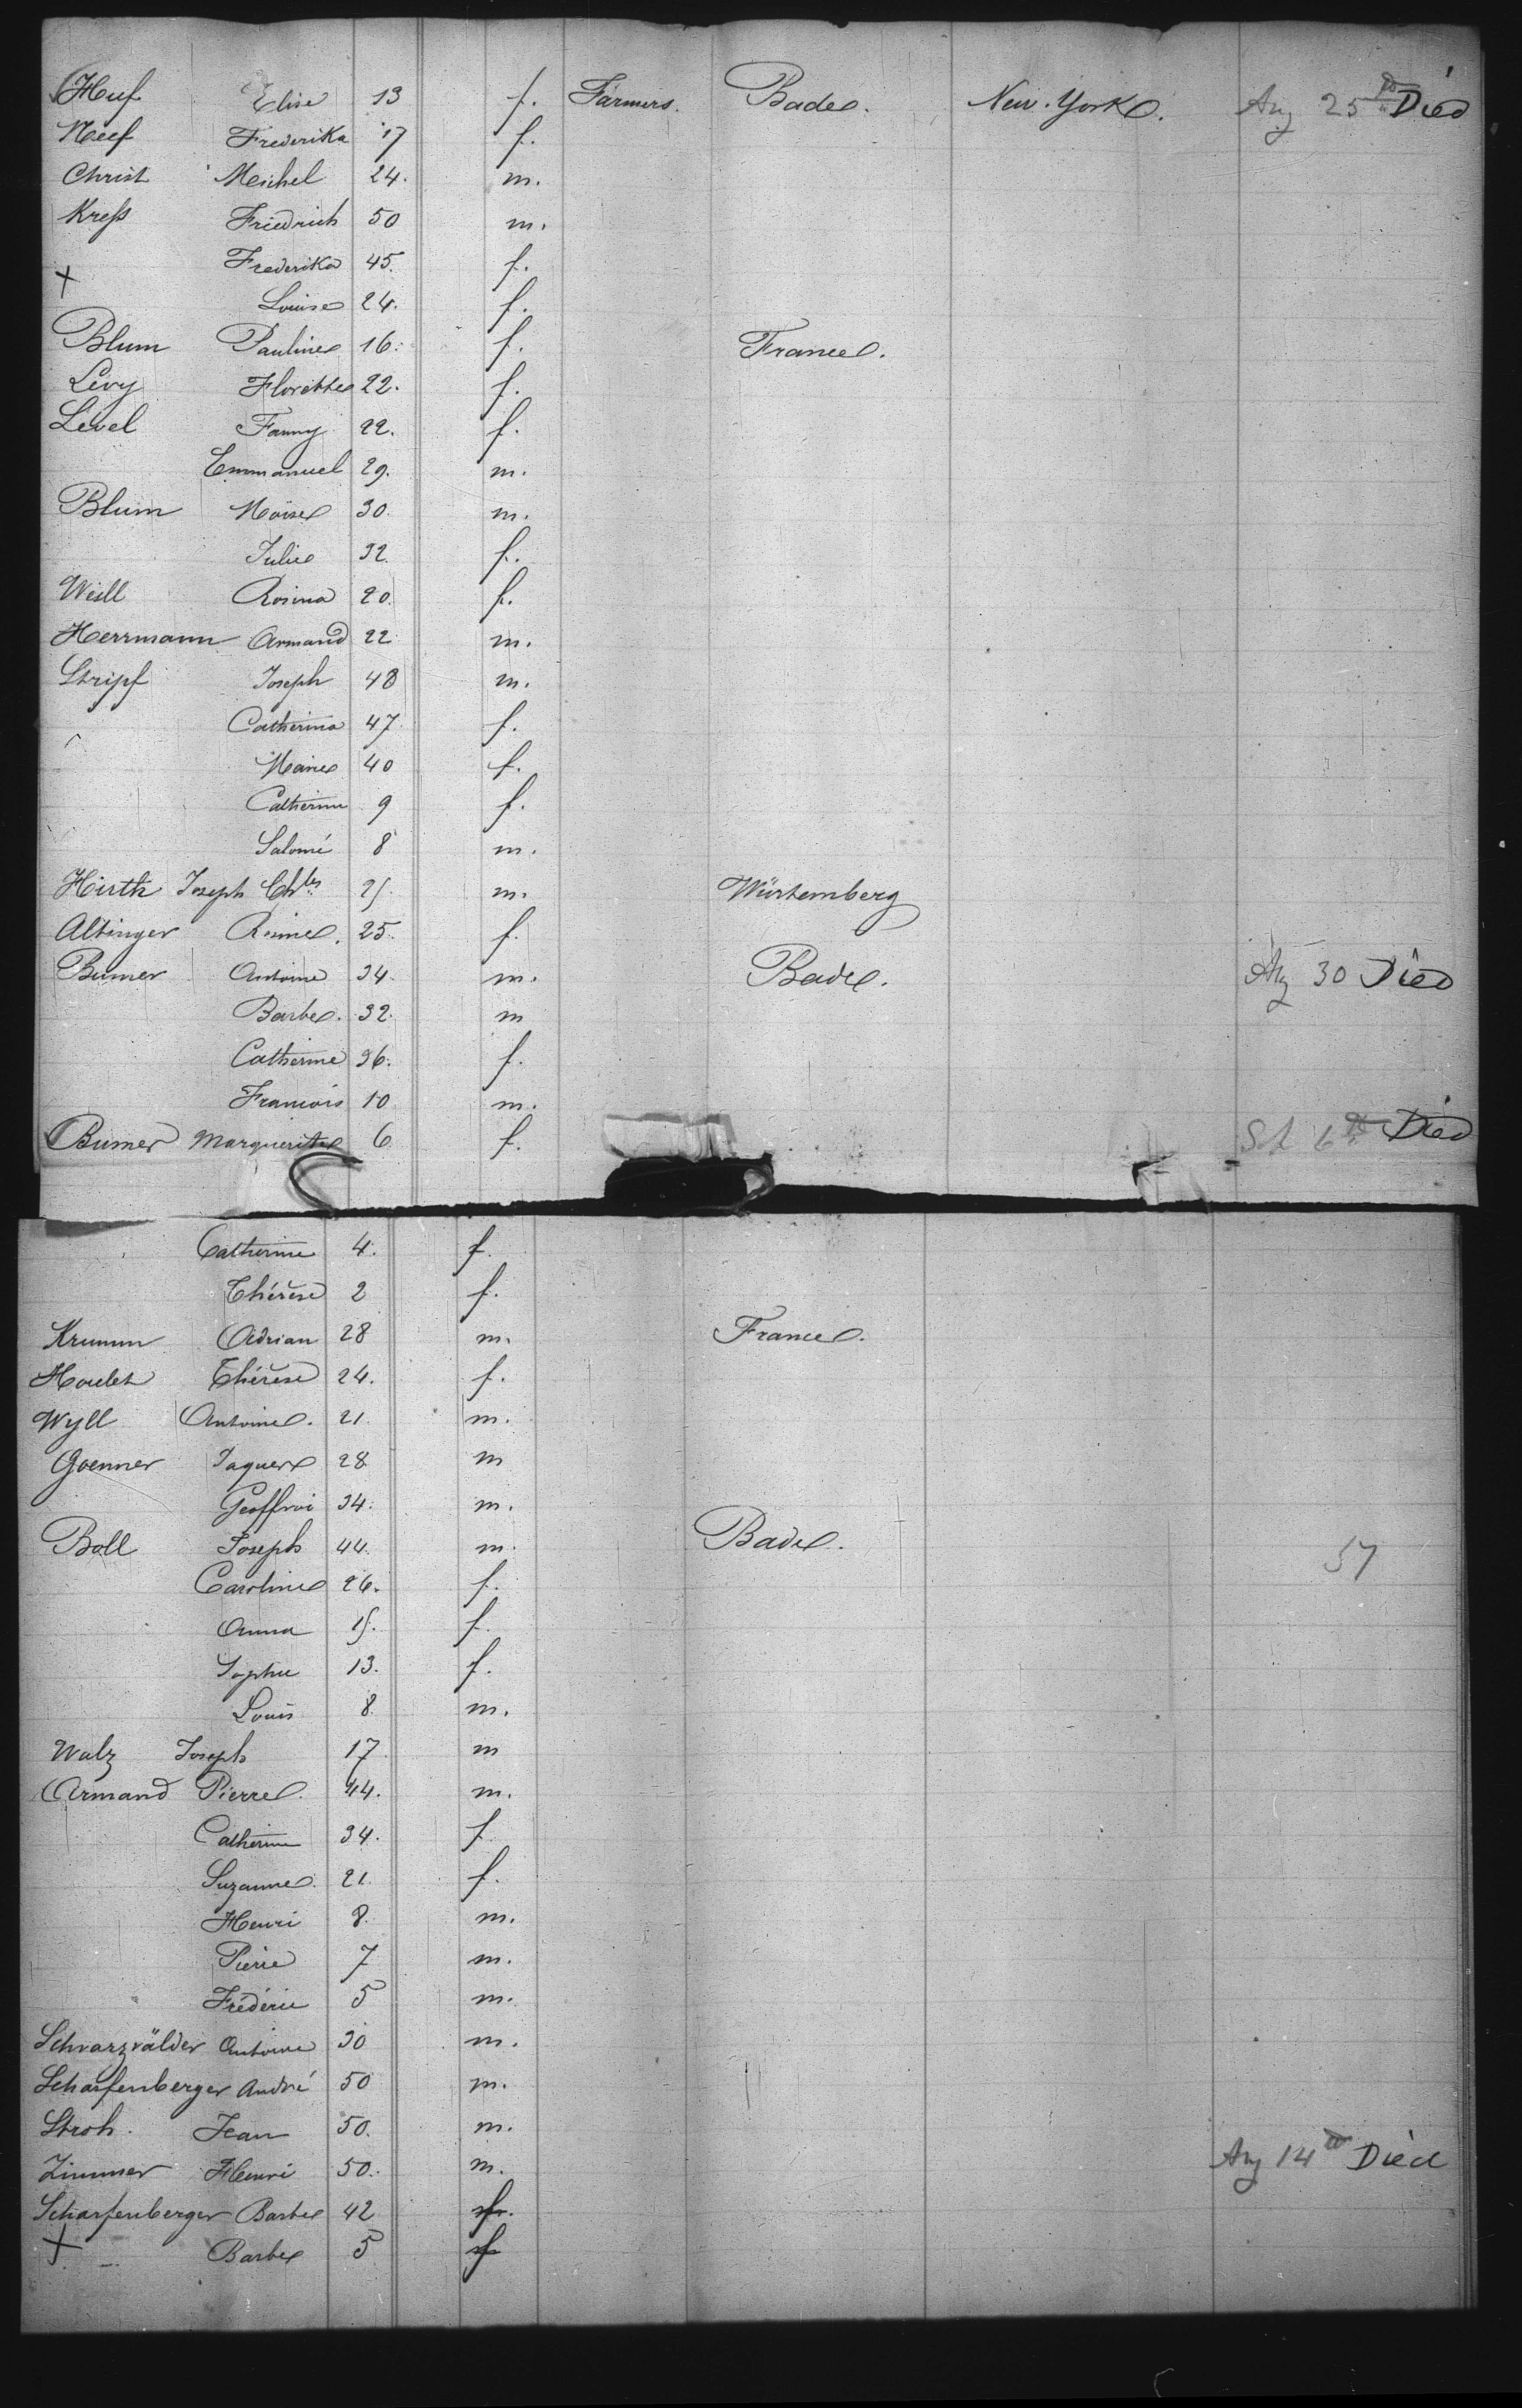 Huf Elise 13 f. Farmers. Bade. New. York. Aug 25th Died
Neef Frederika 17 f.
Christ Meichel 24. m.
Kreſs Friedrich 50 m.
Frederika 45. f.
+
Louise 24. f.
Blum Pauline 16. f. France.
Lévy Florette 22. f.
Level Fanny 22. f.
Emmanuel 29. m.
Blum Moïse 30. m.
Julie 32. f.
Weill Rosina 20. f.
Herrmann Armand 22 m.
Stripf Joseph 48 m.
Catherina 47 f.
Marie 40 f.
Catherine 9 f.
Salomé 8 m.
Hirth Joseph Chles 25. m. Würtemberg
Altinger Rosine. 25. f.
Bumer Antoine 34. m. Bade. Aug 30 Died
Barbe. 32. m
Catherine 36. f.
Francois 10 m.
Bumer Marguerite 6 f. 6th Died
Catherine 4. f.
Thérèse 2 f.
Krumm Adrian 28 m. France.
Houlet Thérèse 24. f.
Wyll Antoine. 21. m.
Goenner Jaques 28 m
Geoffroi 34. m.
Boll Joseph 44. m. Bade. 57
Caroline 26. f.
Anna 15. f.
Sophie 13. f.
Louis 8. m.
Walz Joseph 17. m
Armand Pierre. 44. m.
Catherine 34. f
Suzanne. 21. f.
Henri 8. m.
Pierre 7 m.
Frédéric 5 m.
Schvarzvälder Antoine 30 m.
Scharfenberger André 50 m.
Stroh. Jean 50. m.
Zimmer Henri 50. m. Aug 14th Died
Scharfenberger Barbe 42 f.
+ Barbe 5 f